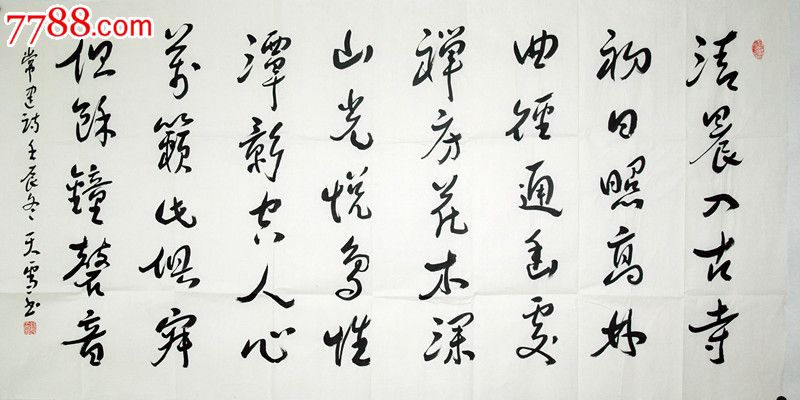 7788.com
清晨入古寺
初日照高林
曲徑通幽處
禪房花木深
山光悦鳥性
潭影空人心
萬籟此俱寂
但餘鐘磬音
常建詩壬辰冬天雪书